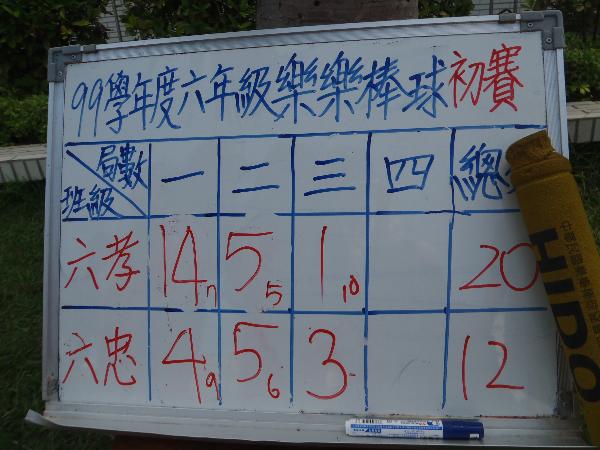 99學年度六年級樂樂棒球初賽
局數 班級 一 二 三 四 總
六孝 14 n 5 5 1 10 20
六忠 4 9 5 6 3 12
HIDO